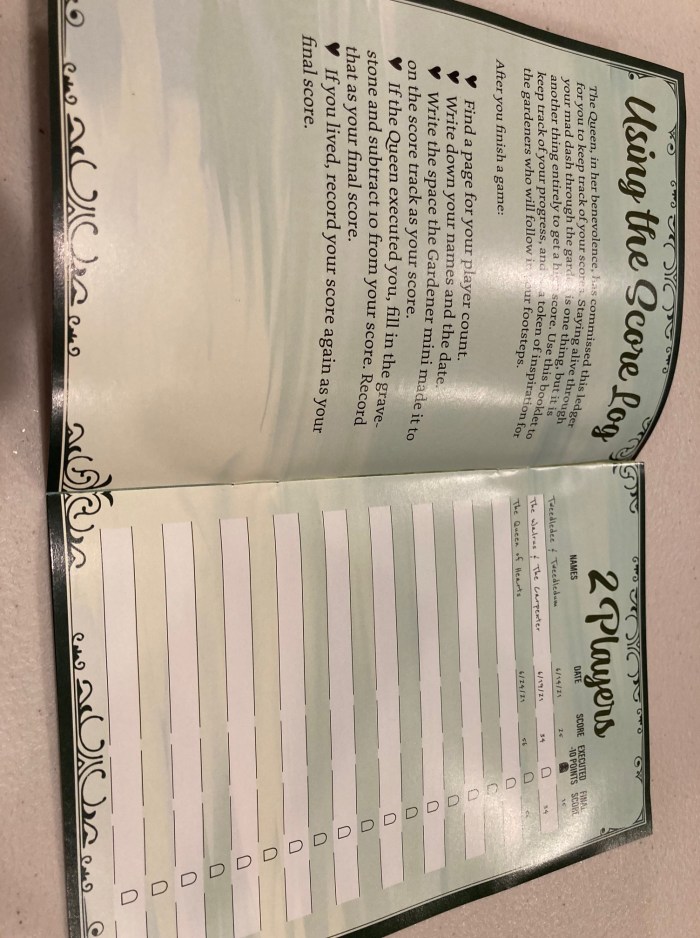 Using the Score Log
The Queen, in her benevolence, has commissed this ledger
for you to keep track of your scores. Staying alive through
your mad dash through the is one thing, but it is
another thing entirely to get a score. Use this booklet to
keep track of your progress, and a token of inspiration for
the gardeners who will follow in your footsteps.
After you finish a game:
♥ Find a page for your player count.
♥ Write down your names and the date.
♥ Write the space the Gardener mini made it to
on the score track as your score.
♥ If the Queen executed you, fill in the grave-
stone and subtract 10 from your score. Record
that as your final score.
♥ If you lived, record your score again as your
final score.
2 Players
NAMES DATE SCORE EXECUTED -10 POINTS FINAL SCORE
Tweedledee & Tweedledum 6/14/21
The Walrus & The Carpenter 6/19/21 39 39
The Queen of Hearts 6/29/21